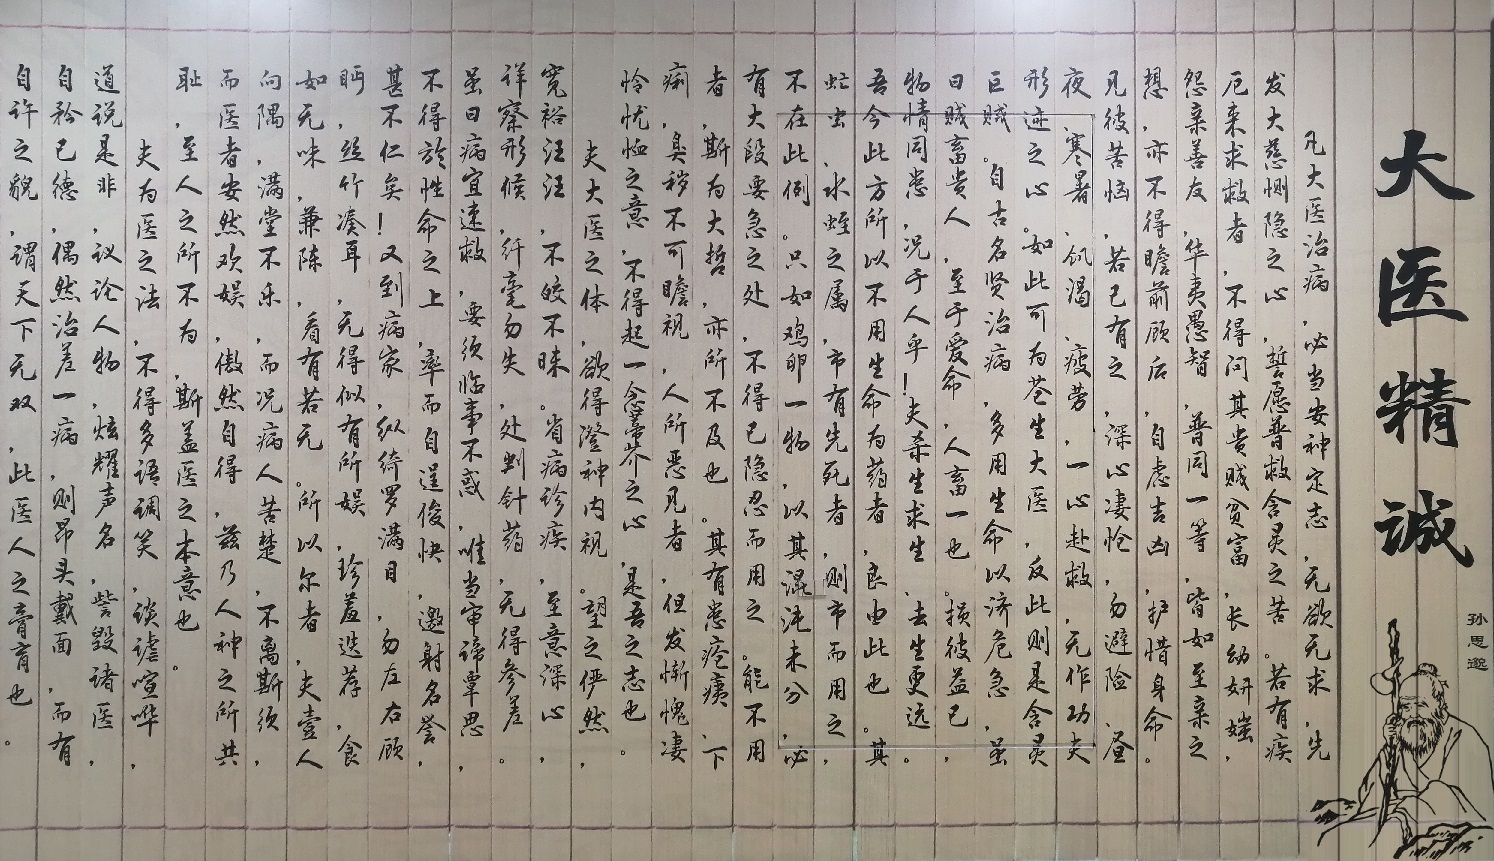 大医精诚
孙思邈
凡大医治病，必当安神定志，无欲无求，先
发大慈恻隐之心，誓愿普救含灵之苦。若有疾
厄来求救者，不得问其贵贱贫富，长幼妍媸，
怨亲善友，华夷愚智，普同一等，皆如至亲之
想，亦不得瞻前顾后，自虑吉凶，护惜身命。
见彼苦恼，若己有之，深心凄怆，勿避险、昼
夜、寒暑、饥渴、疲劳，一心赴救，无作功夫
形迹之心。如此可为苍生大医，反此则是含灵
巨贼。自古名贤治病，多用生命以济危急，虽
曰贱畜贵人，至于爱命，人畜一也。损彼益己，
物情同患，况于人乎！夫杀生求生，去生更远。
吾今此方所以不用生命为药者，良由此也。其
虻虫、水蛭之属，市有先死者，则市而用之，
不在此例。只如鸡卵一物，以其混沌未分，必
有大段要急之处，不得已隐忍而用之。能不用
者，斯为大哲，亦所不及也。其有患疮痍、下
痢，臭秽不可瞻视，人所恶见者，但发惭愧凄
怜忧恤之意，不得起一念蒂芥之心，是吾之志也。
夫大医之体，欲得澄神内视，望之俨然，
宽裕汪汪，不皎不昧。省病诊疾，至意深心，
详察形候，纤毫勿失，处判针药，无得参差。
虽曰病宜速救，要须临事不惑，唯当审谛覃思，
不得於性命之上，率而自逞俊快，邀射名誉，
甚不仁矣！又到病家，纵绮罗满目，勿左右顾
眄，丝竹凑耳，无得似有所娱，珍羞迭荐，食
如无味，兼陈，看有若无。所以尔者，夫壹人
向隅，满堂不乐，而况病人苦楚，不离斯须，
而医者安然欢娱，傲然自得，兹乃人神之所共
耻，至人之所不为，斯盖医之本意也。
夫为医之法，不得多语调笑，谈谑喧哗，
道说是非，议论人物，炫耀声名，訾毁诸医，
自矜己德，偶然治差一病，则昂头戴面，而有
自许之貌，谓天下无双，此医人之膏肓也。